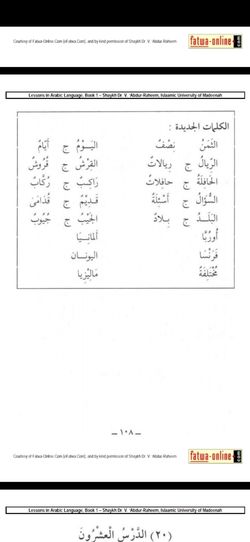 Courtesy of Fatwa-Online.Com (eFatwa.Com), and by kind permission of Shaykh Dr. V. 'Abdur-Raheem
fatwa-online
Lessons in Arabic Language, Book 1 – Shaykh Dr. V. 'Abdur-Raheem, Islaamic University of Madeenah
الكلمات الجديدة :
الثَّمَنُ نِصْفٌ اليَوْمُ ج أَيَّامٌ
الرِّيَالُ ج رِيالاتٌ القِرْشُ ج قُرُوشٌ
الحَافِلَةُ ج حافِلاتٌ رَاكِبٌ ج رُكَّابٌ
السُّؤَالُ ج أَسْئِلَةٌ قَدِيْمٌ ج قُدَامَى
البَلَدُ ج بِلادٌ الجَيْبُ ج جُيُوبٌ
أُورُبَّا أَلمانِيَا
فَرَنْسَا اليونسان
مُخْتَلِفَةٌ مَالِيْزِيا
– ١٠٨ –
Courtesy of Fatwa-Online.Com (eFatwa.Com), and by kind permission of Shaykh Dr. V. 'Abdur-Raheem
fatwa-online
Lessons in Arabic Language, Book 1 – Shaykh Dr. V. 'Abdur-Raheem, Islaamic University of Madeenah
(٢٠) الدَّرْسُ الْعِشْرُونَ